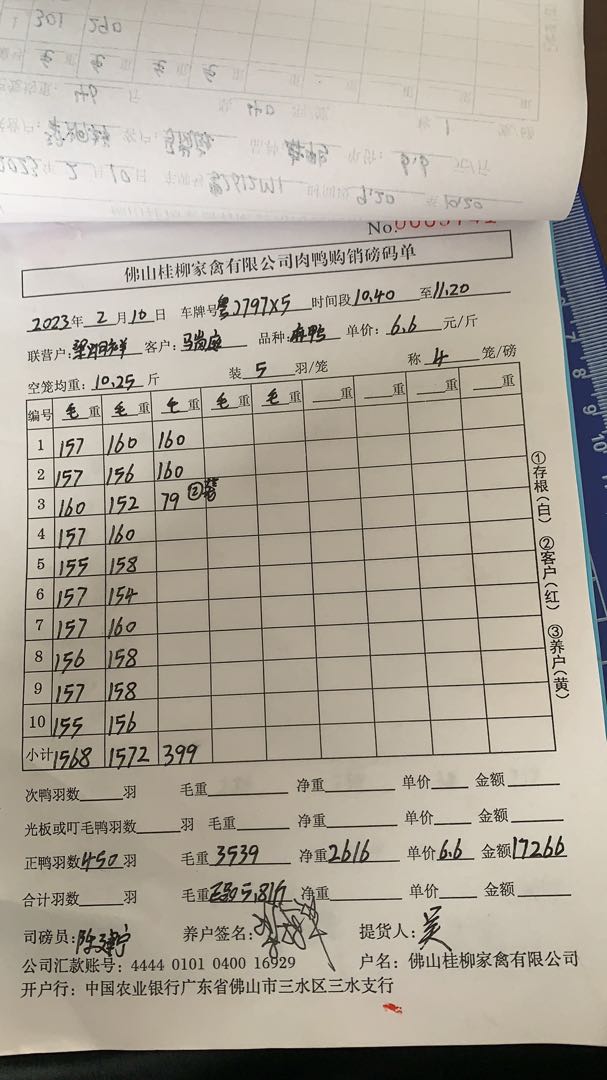 301 290
No.
佛山桂柳家禽有限公司肉鸭购销磅码单
2023年 2 月 10 日 车牌号粤2797X5 时间段10.40 至11.20
联营户: 客户:马岗庭 品种:麻鸭 单价:6.6 元/斤
空笼均重:10.25斤 装 5 羽/笼 称 4 笼/磅
编号 毛重 毛重 毛重 毛重 毛重 重 重 重 重
1 157 160 160
2 157 156 160
3 160 152 79 ②
4 157 160
5 155 158
6 157 154
7 157 160
8 156 158
9 157 158
10 155 156
小计 1568 1572 399
①存根(白) ②客户(红) ③养户(黄)
次鸭羽数 羽 毛重 净重 单价 金额
光板或叮毛鸭羽数 羽 毛重 净重 单价 金额
正鸭羽数450羽 毛重3539 净重2616 单价6.6 金额17266
合计羽数 羽 毛重 5.81斤 净重 单价 金额
司磅员: 养户签名: 提货人:吴
公司汇款账号: 4444 0101 0400 16929 户名:佛山桂柳家禽有限公司
开户行:中国农业银行广东省佛山市三水区三水支行